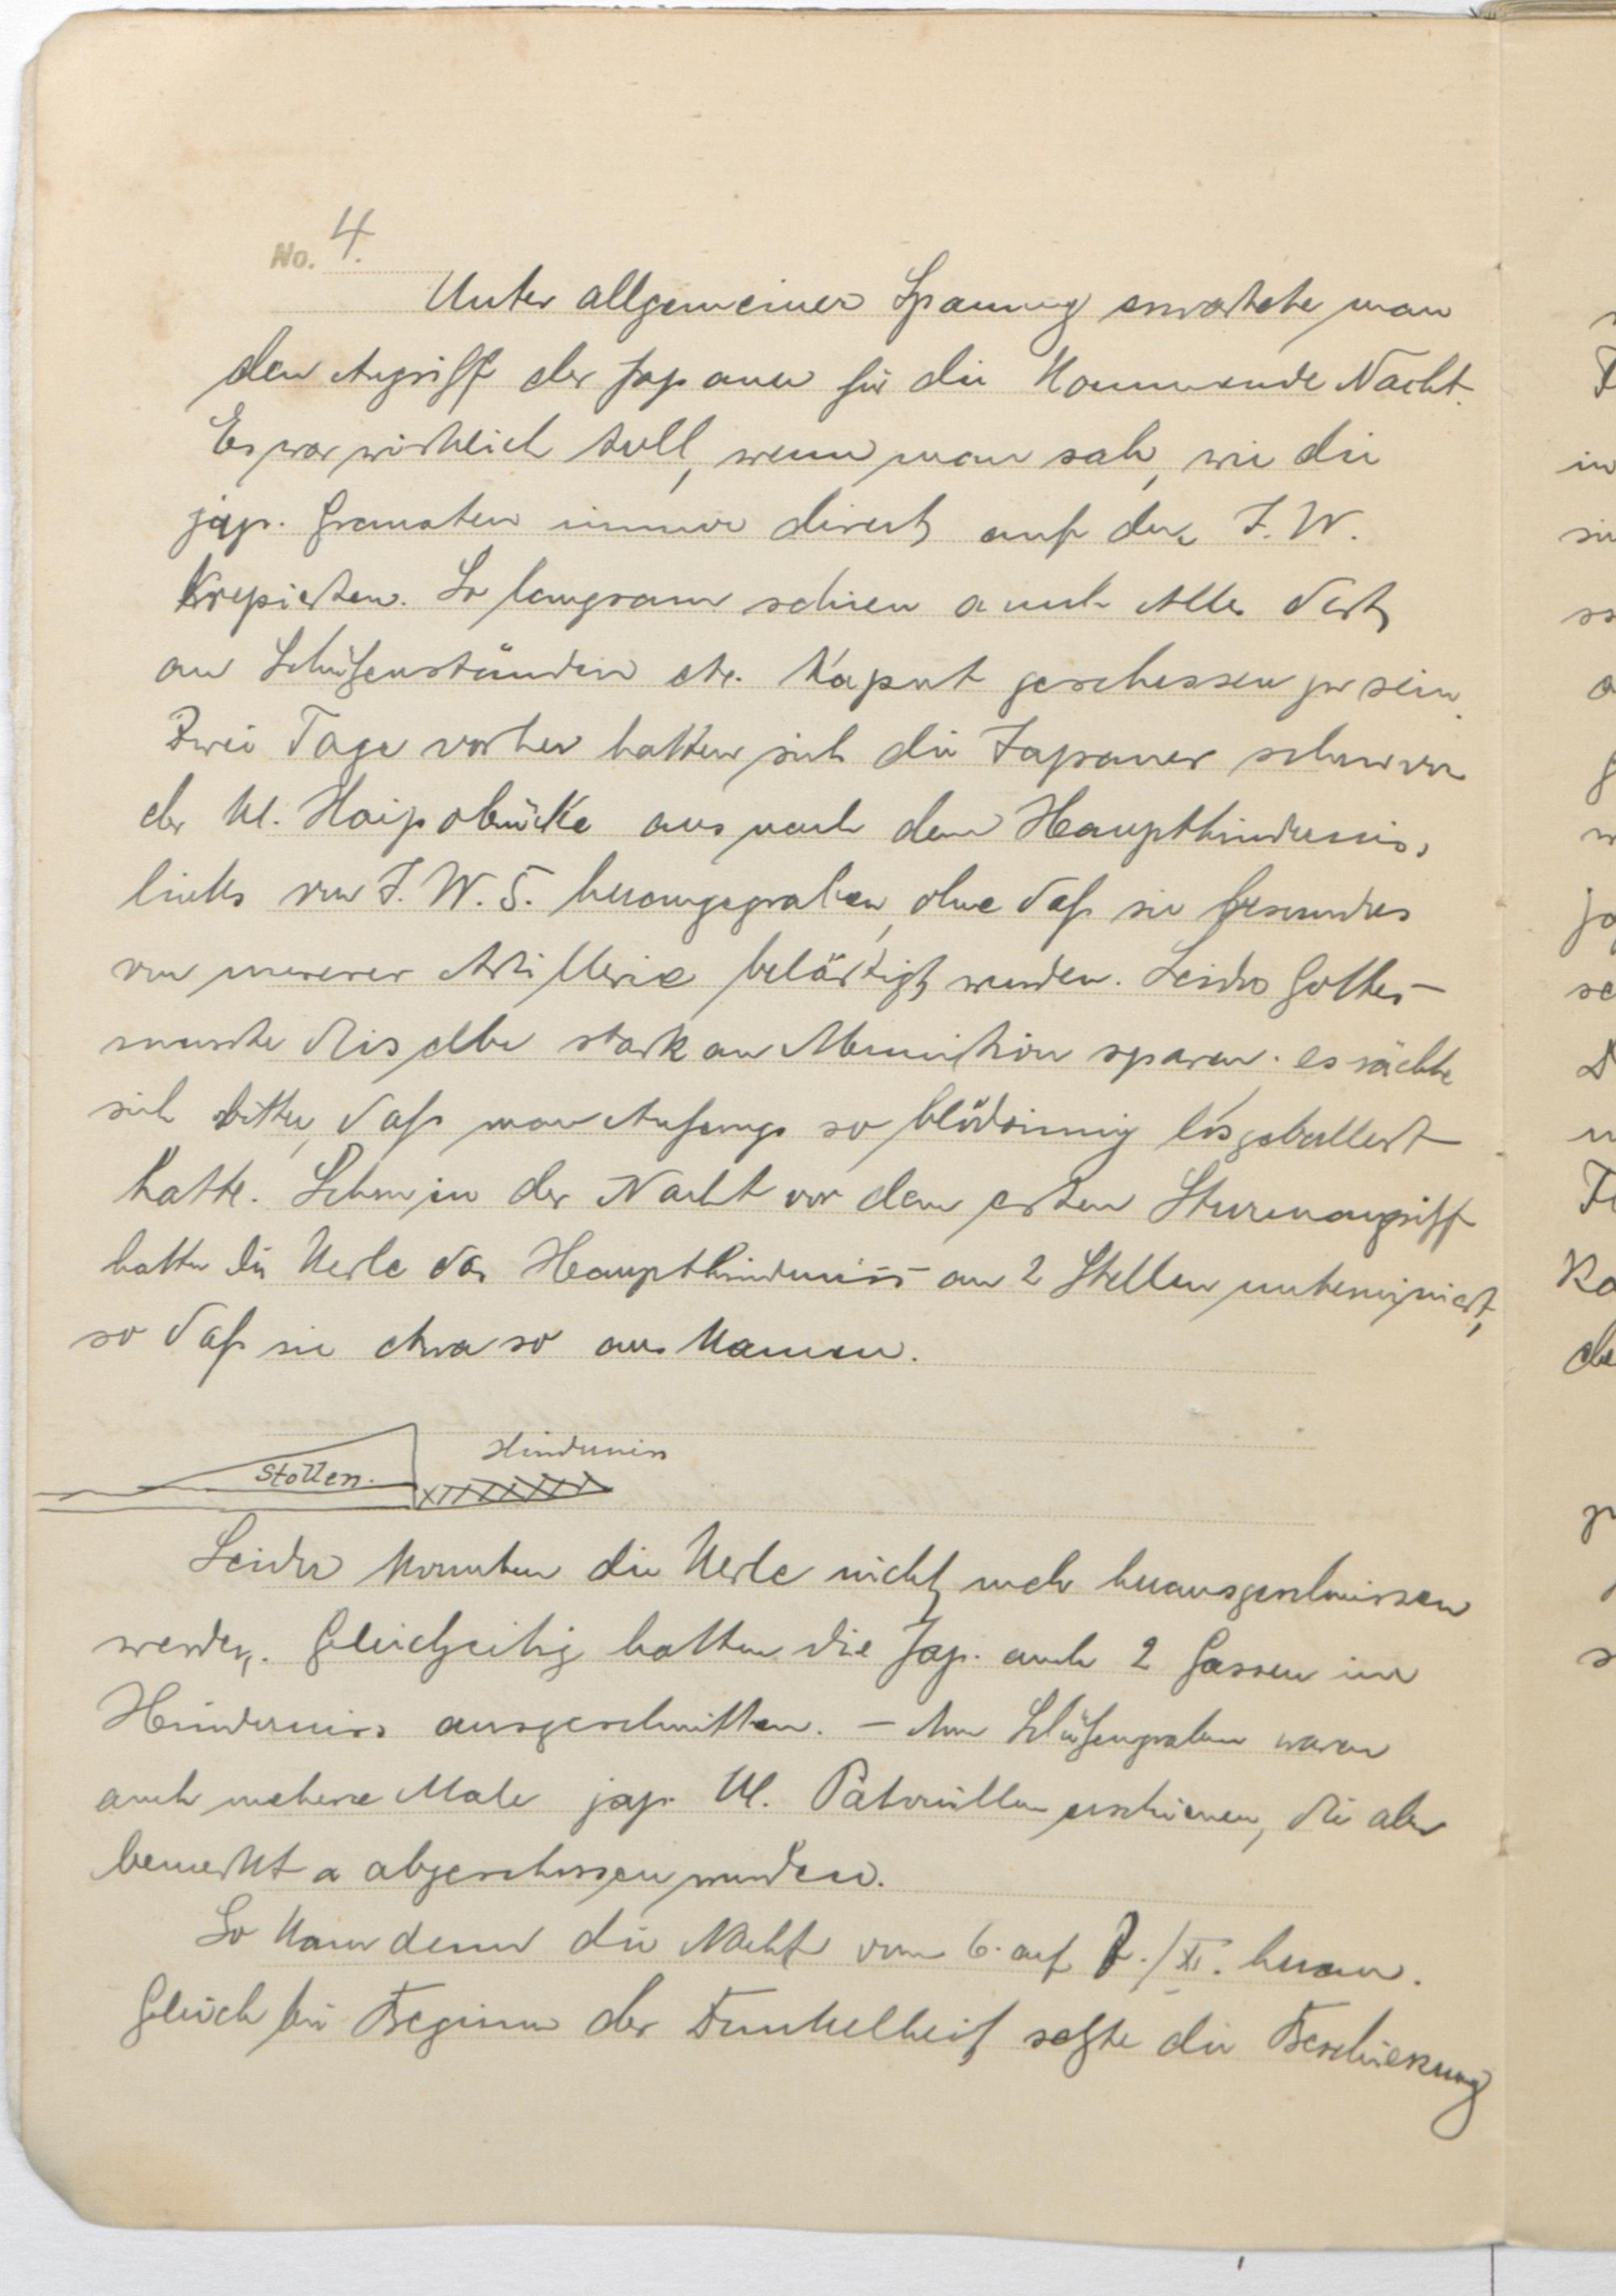 No. 4.
Unter allgemeiner Spannung erwartete man
den Angriff der Japaner für die kommende Nacht.
Es war wirklich toll, wenn man sah, wie die
jap. Granaten immer direct auf den I. W.
krepierten. So langsam schien auch Alles dort
an Schützenständen etc. kaput geschossen zu sein.
Zwei Tage vorher hatten sich die Japaner schon von
der kl. Haipobrücke aus nach dem Haupthinderniss
links von I. W. 5. herangegraben, ohne daß sie besonders
von unserer Artillerie belästigt wurden. Leider Gottes
musste dieselbe stark an Munition sparen. es rächte
sich bitter, daß man Anfangs so blödsinnig losgeballert
hatte. Schon in der Nacht vor dem ersten Sturmangriff
hatten die Kerle das Haupthinderniss an 2 Stellen unterminiert,
so daß sie etwa so aus kamen.
Hinderniss
Stollen.
Leider konnten die Kerle nicht mehr herausgeschmissen
werden. Gleichzeitig hatten die Jap. auch 2 Gassen im
Hinderniss ausgeschnitten. - Am Schützengraben waren
auch mehere Male jap. kl. Patrouillen erschienen, die aber
bemerkt u abgeschossen wurden.
So kam denn die Nacht vom 6. auf 7./XI. heran.
Gleich bei Beginn der Dunkelheit setzte die Beschiessung